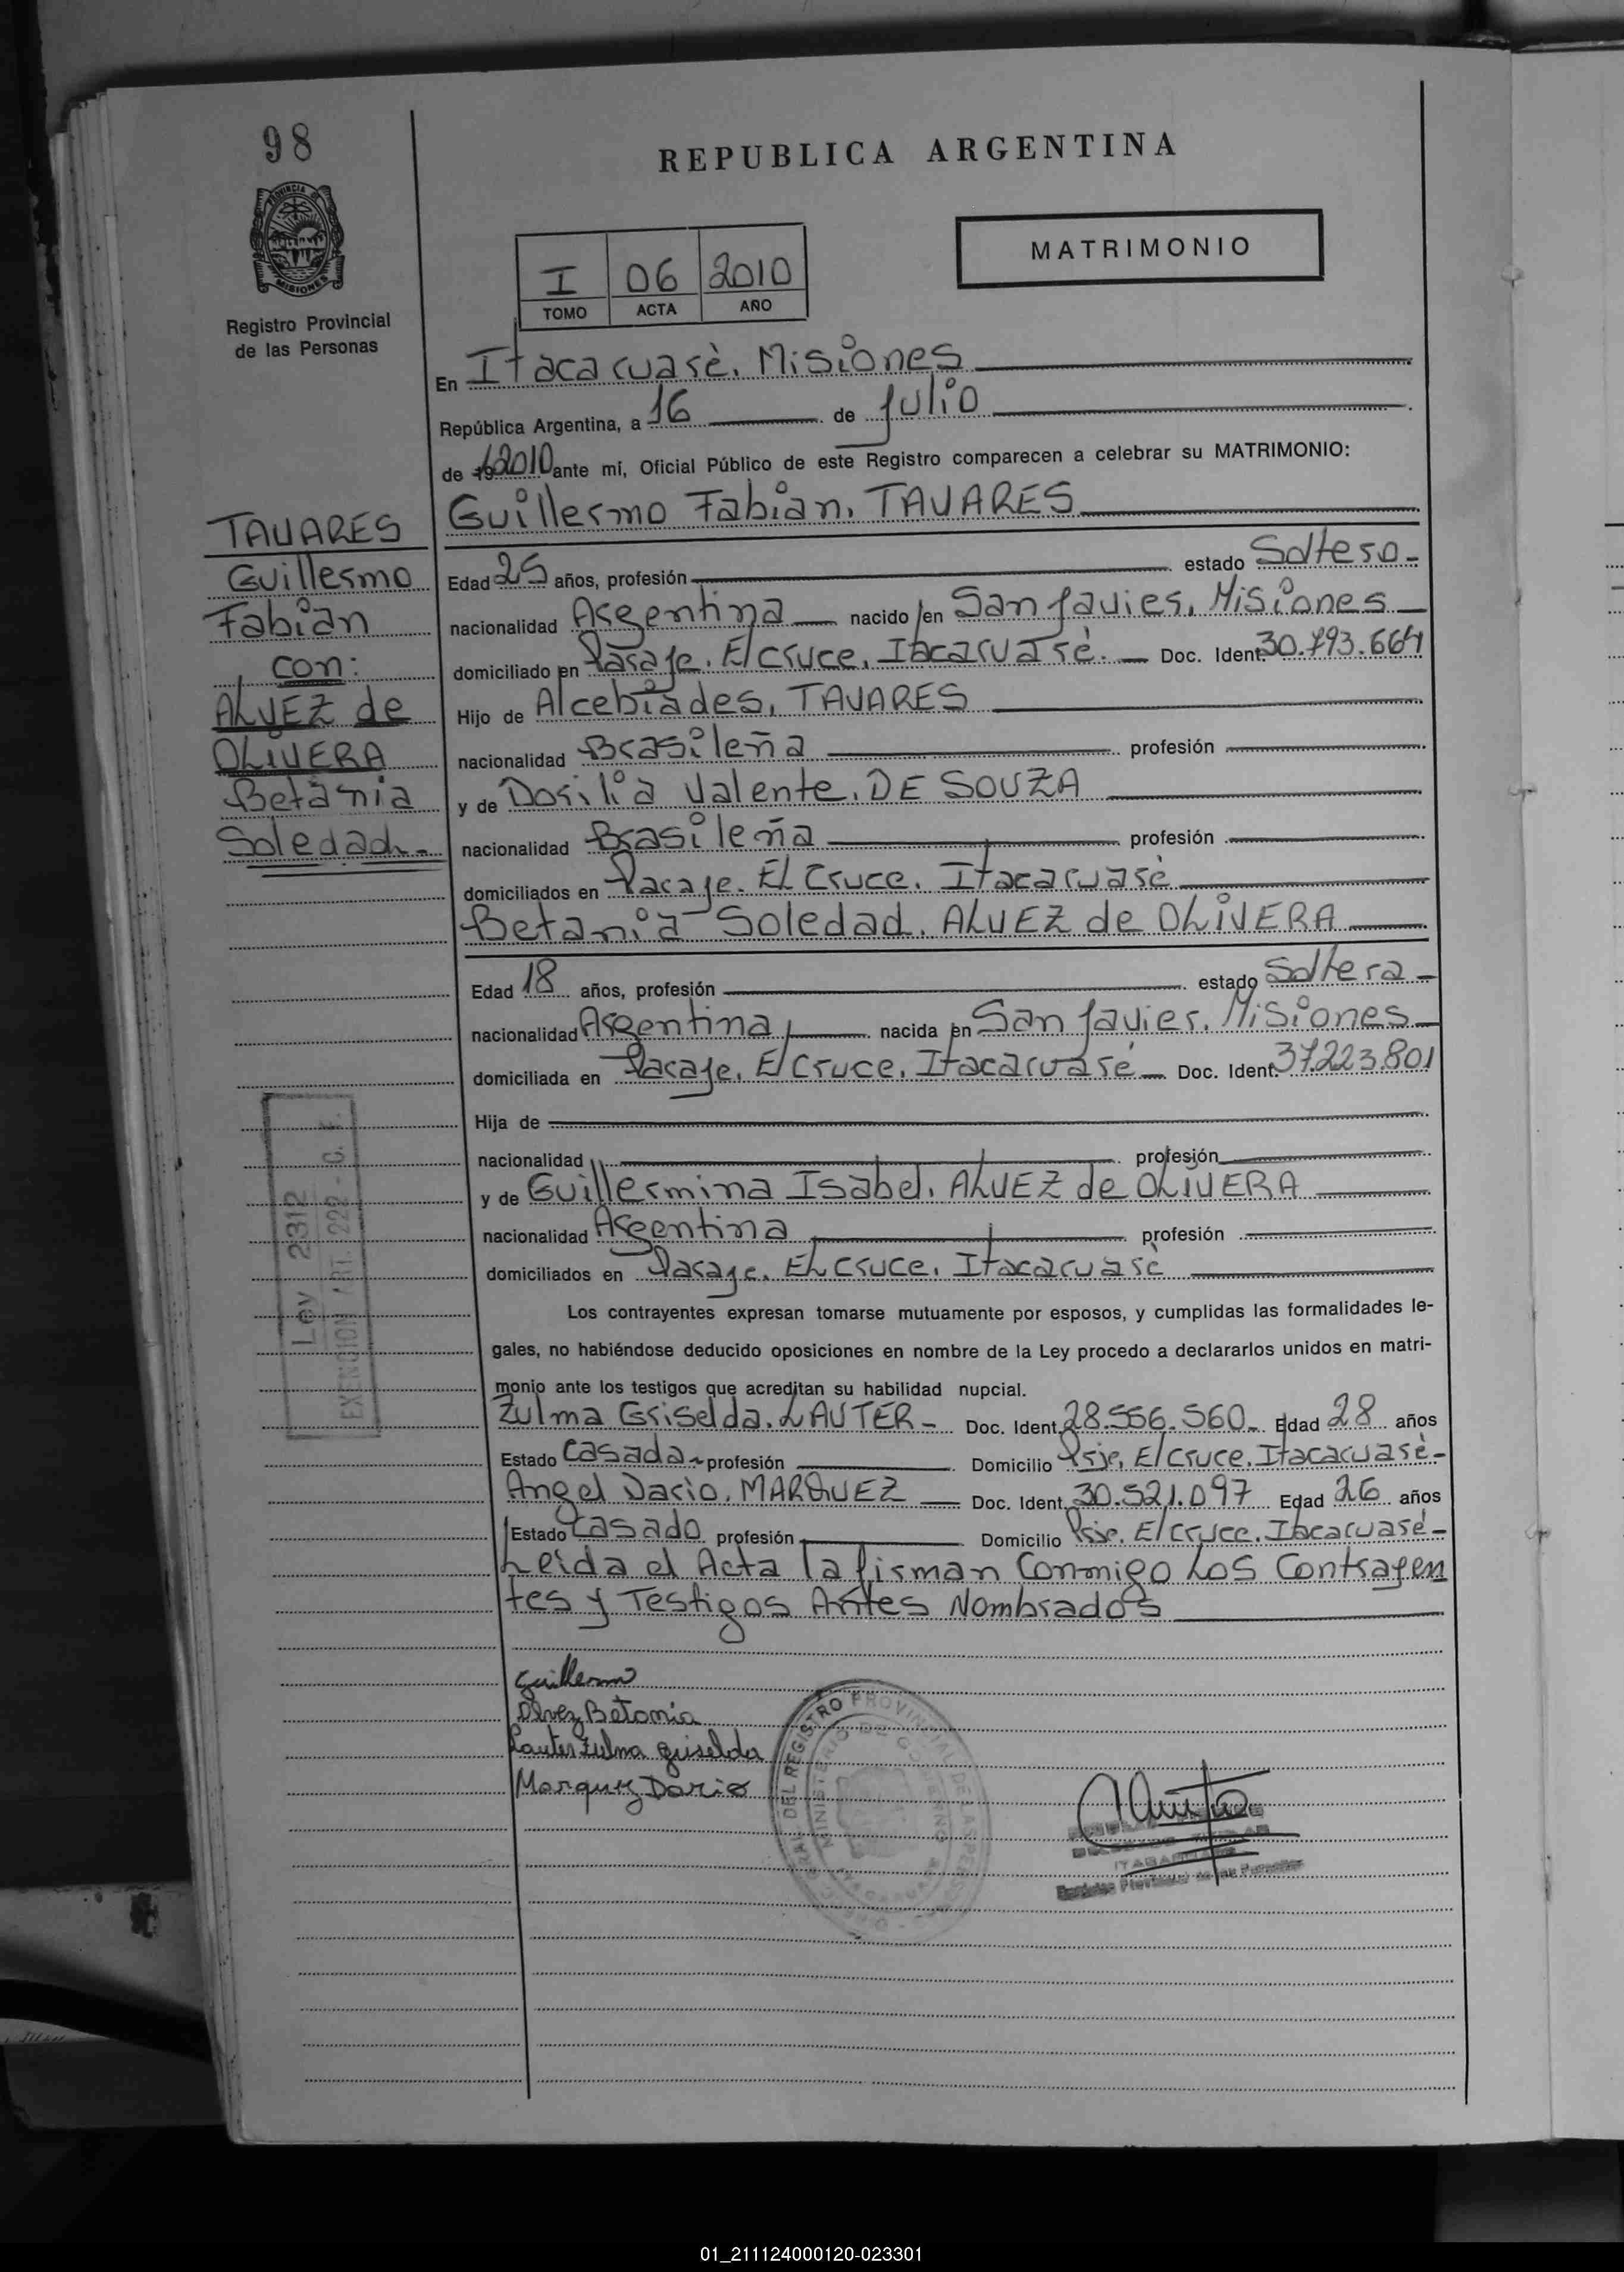 98
REPUBLICA ARGENTINA
PROVINCIA DE
MISIONES
Registro Provincial
de las Personas
MATRIMONIO
I 06 2010
TOMO ACTA AÑO
En Itacaruaré, Misiones
República Argentina, a 16 de Julio
de 19 2010 ante mi, Oficial Público de este Registro comparecen a celebrar su MATRIMONIO:
Guillermo Fabian, TAVARES
TAVARES
Guillermo
Fabian
con:
ALVEZ de
OLIVERA
Betania
Soledad.-
Edad 25 años, profesión estado Soltero-
nacionalidad Argentina nacido en San Javier, Misiones
domiciliado en Pasaje, El Cruce, Itacaruaré. Doc. Ident. 30.793.664
Hijo de Alcebiades, TAVARES
nacionalidad Brasileña profesión
y de Dorilia Valente, DE SOUZA
nacionalidad Brasileña profesión
domiciliados en Paraje. El Cruce. Itacaruaré
Betania Soledad, ALVEZ de OLIVERA
Edad 18 años, profesión estado Soltera-
nacionalidad Argentina nacida en San Javier, Misiones
domiciliada en Paraje, El Cruce, Itacaruaré Doc. Ident. 37.223.801
Hija de
nacionalidad profesión
y de Guillermina Isabel, ALVEZ de OLIVERA
nacionalidad Argentina profesión
domiciliados en Paraje, El Cruce, Itacaruaré
Los contrayentes expresan tomarse mutuamente por esposos, y cumplidas las formalidades le-
gales, no habiéndose deducido oposiciones en nombre de la Ley procedo a declararlos unidos en matri-
monio ante los testigos que acreditan su habilidad nupcial.
Zulma Griselda, LAUTER- Doc. Ident. 28.556.560 Edad 28 años
Estado Casada profesión Domicilio Prje, El Cruce, Itacaruaré-
Angel Dario, MARQUEZ Doc. Ident. 30.521.097 Edad 26 años
Estado Casado profesión Domicilio Prje, El Cruce, Itacaruaré-
Leida el Acta la firman Conmigo Los Contrayen
tes y Testigos Antes Nombrados
Ley 2312
EXENCION ART. 222 - C. F.
Guillermo
Alvez Betania
Lauter Zulma Griselda
Marquez Dario
DEL REGISTRO PROVINCIAL DE LAS PERSONAS
MINISTERIO DE GOBIERNO
01_211124000120-023301